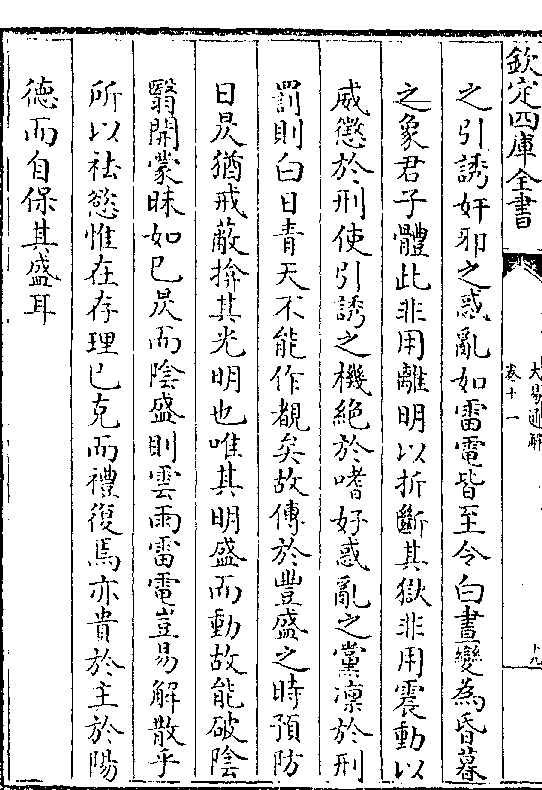 欽定四庫全書
大易通解
卷十一
之引誘奸邪之惑亂如雷電皆至令白晝變為昏暮
之象君子體此非用離明以折斷其獄非用震動以
威懲於刑使引誘之機絕於嗜好惑亂之黨凛於刑
罰則白日青天不能作覩矣故傳於豐盛之時預防
日昃猶戒蔽揜其光明也唯其明盛而動故能破陰
翳開蒙昧如已昃而陰盛則雲雨雷電豈易解散乎
所以祛慾惟在存理已克而禮復焉亦貴於主於陽
德而自保其盛耳